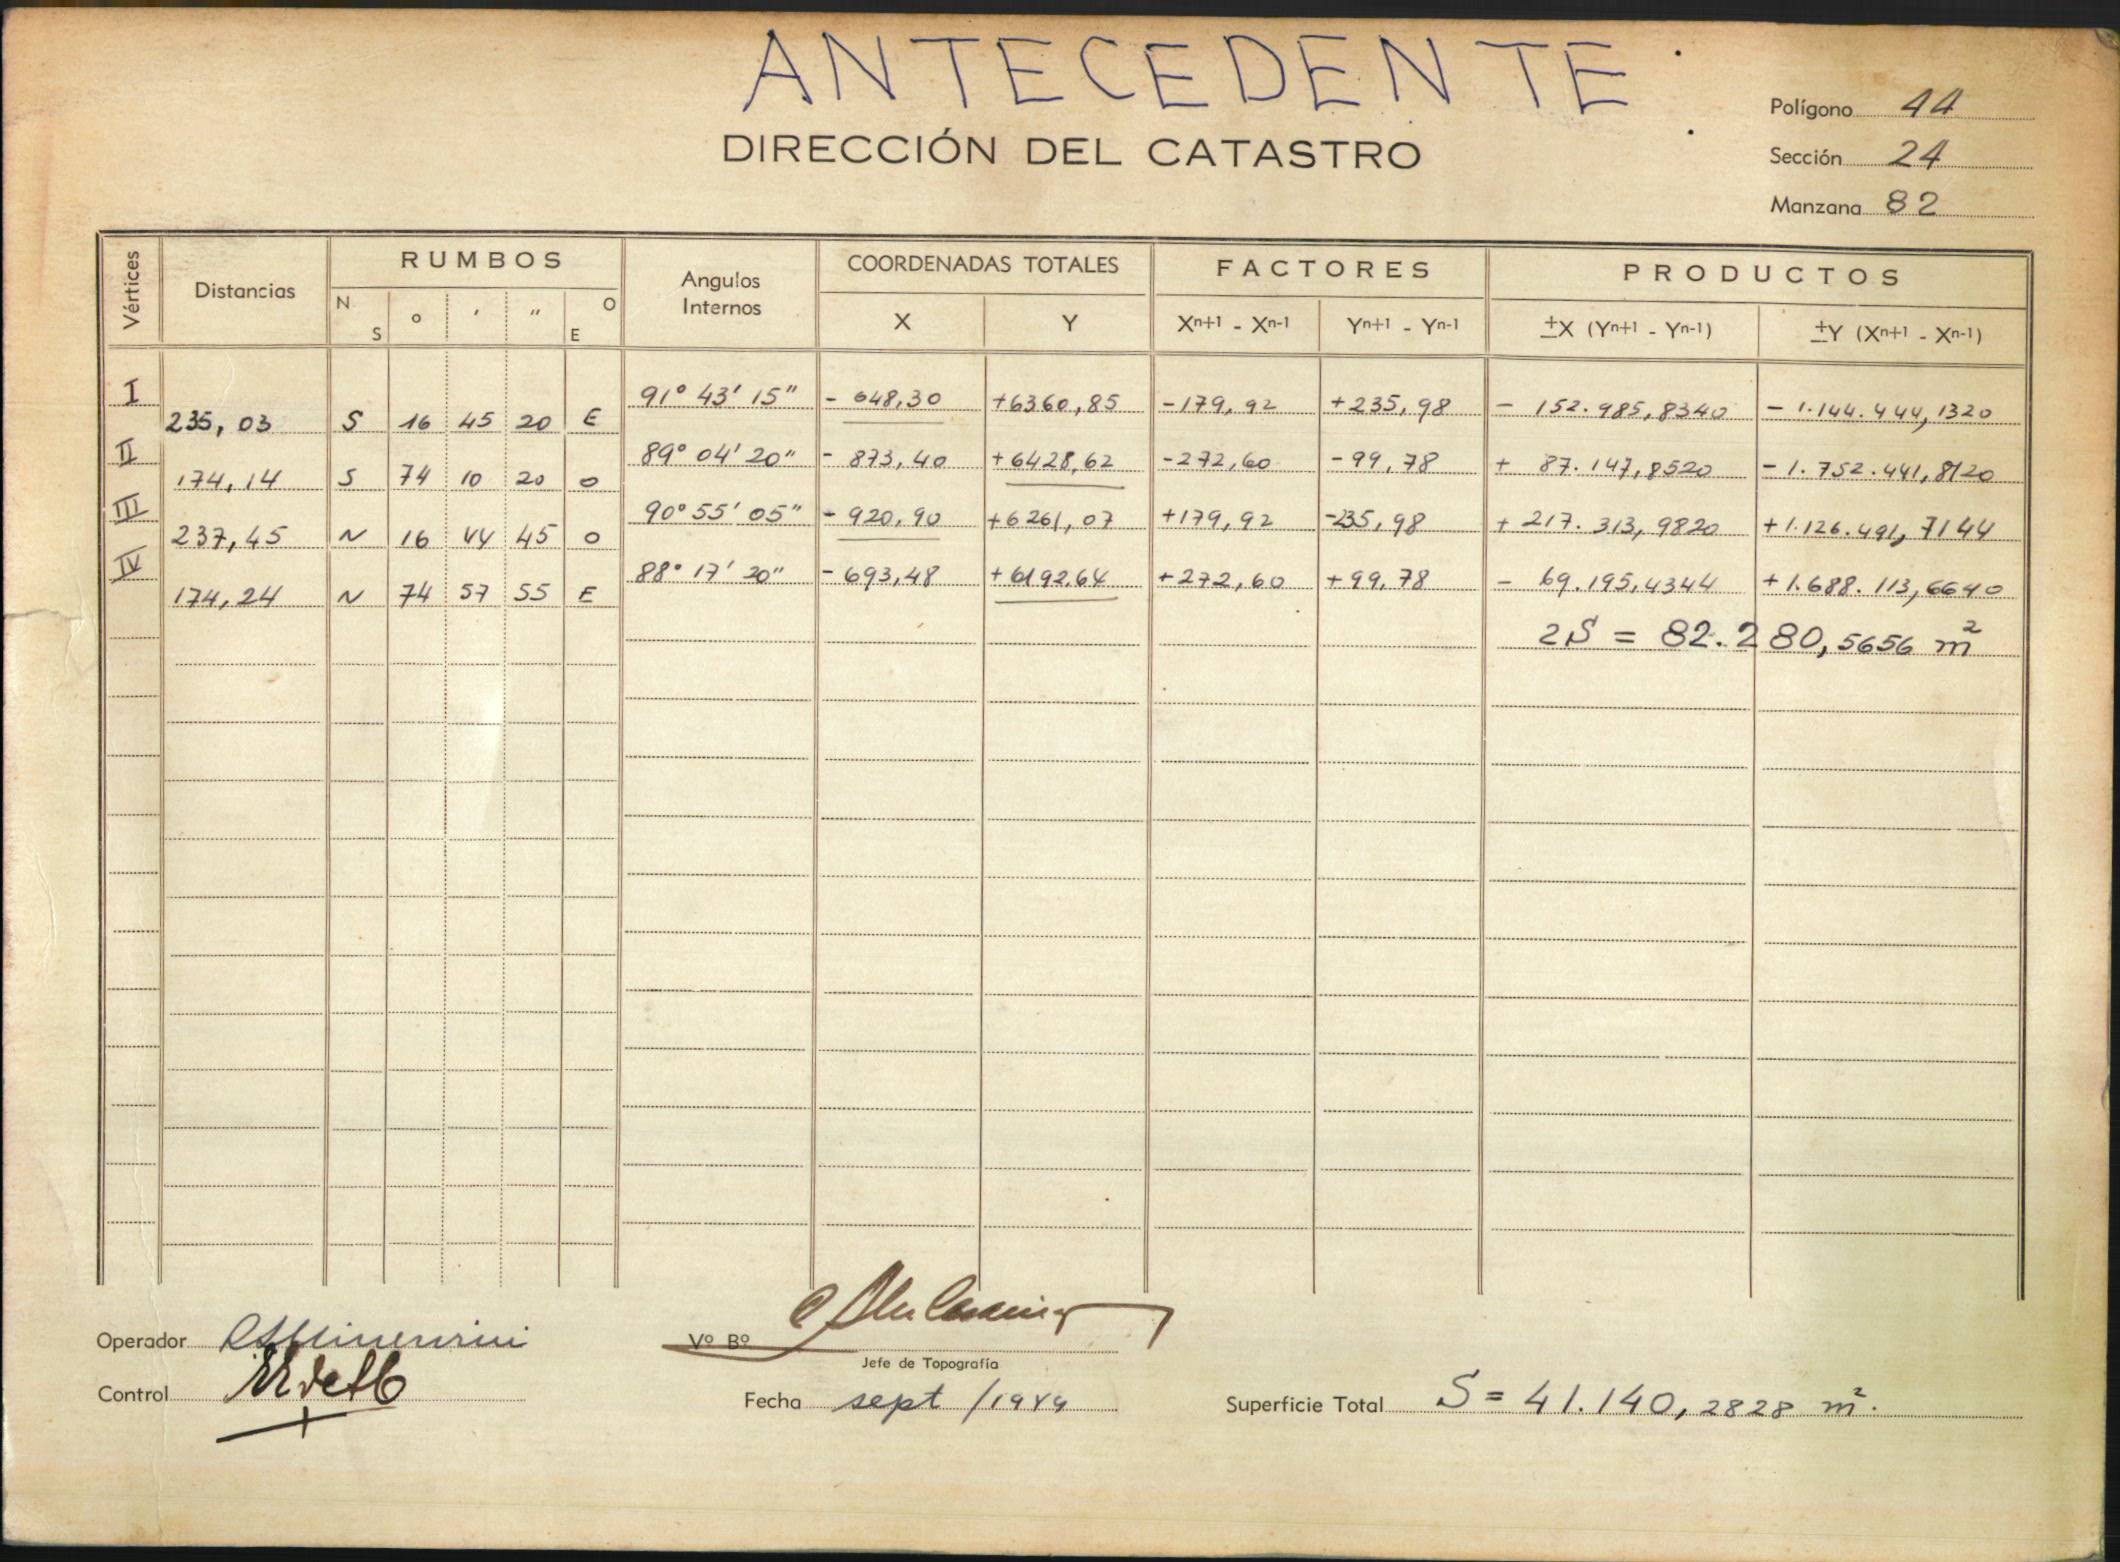 ANTECEDENTE
DIRECCIÓN DEL CATASTRO
Polígono 44
Sección 24
Manzana 82
Vértices Distancias RUMBOS Angulos Internos COORDENADAS TOTALES FACTORES PRODUCTOS
N S ° ' " O E X Y Xn+1 - Xn-1 Yn+1 - Yn-1 ±X (Yn+1 - Yn-1) ±Y (Xn+1 - Xn-1)
I 91° 43' 15" - 648,30 +6360,85 -179,92 +235,98 - 152.985,8340 - 1.144.444,1320
235,03 S 16 45 20 E
II 89° 04' 20" - 873,40 +6428,62 -272,60 -99,78 + 87.147,8520 - 1.752.441,8120
174,14 S 74 10 20 O
III 90° 55' 05" - 920,90 +6261,07 +179,92 -235,98 + 217.313,9820 +1.126.491,7144
237,45 N 16 44 45 O
IV 88° 17' 20" - 693,48 +6192,64 +272,60 +99,78 - 69.195,4344 +1.688.113,6640
174,24 N 74 57 55 E
2S = 82.280,5656 m²
Operador
Vº Bº
Jefe de Topografía
Control
Fecha sept /1949
Superficie Total S = 41.140,2828 m².